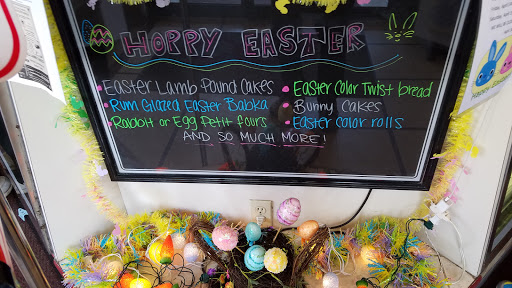 HOPPY EASTER
Easter Lamb Pound Cakes
Rum Glazed Easter Babka
Rabbit or Egg Petit fours
Easter Color Twist bread
Bunny Cakes
Easter color rolls
AND SO MUCH MORE!